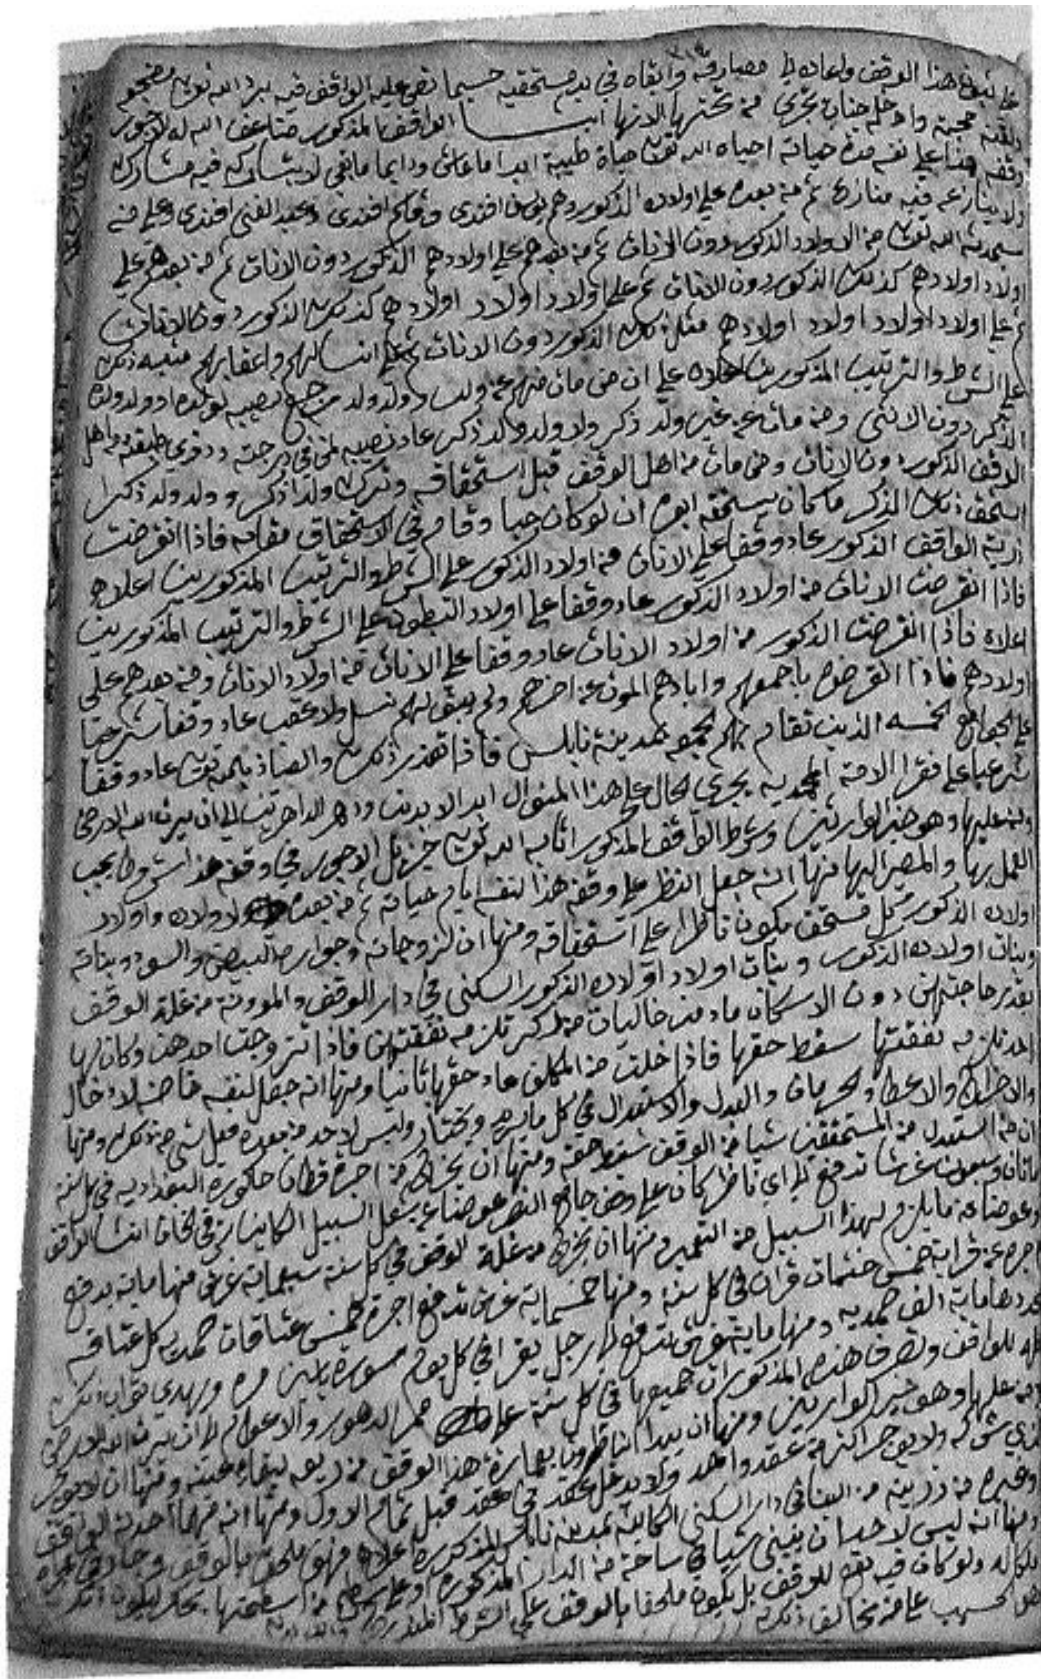 هذا الوقف واعاده الى مصارفه وابقاه في يد مستحقيه حسبما نص عليه الواقف فيه برد الله تعالى مضجعه
وادخله جنان تجري من تحتها الانهار انشا الواقف المذكور ضاعف الله له الاجور
وقفه هذا على نفسه مدة حياته احياه الله تعالى حياة طيبة ابدا ما عاش ودايما ما بقي لا يشاركه فيه مشارك
ولا ينازعه فيه منازع ثم من بعده على اولاده الذكور وهم افندي وقاسم افندي وعبد الغني افندي وعلى من
سيحدثه الله تعالى من الاولاد الذكور دون الاناث ثم من بعدهم على اولادهم الذكور دون الاناث ثم من بعدهم على
اولاد اولادهم كذلك الذكور دون الاناث ثم على اولاد اولاد اولادهم كذلك الذكور دون الاناث
ثم على اولاد اولاد اولاد اولادهم مثل ذلك الذكور دون الاناث ثم على انسالهم واعقابهم
على الشرط والترتيب المذكورين اعلاه على ان من مات منهم عن ولد او ولد ولد رجع نصيبه لولده او ولد ولده
الذكر دون الانثى ومن مات عن غير ولد ذكر ولا ولد ولد ذكر عاد نصيبه لمن في درجته وذوي طبقته من اهل
الوقف الذكور دون الاناث ومن مات من اهل الوقف قبل استحقاقه وترك ولدا ذكر او ولد ولد ذكرا
استحق ذلك الذكر ما كان يستحقه ابوه ان لو كان حيا وقام في الاستحقاق مقامه فاذا انقرضت
ذرية الواقف الذكور عاد وقفا على الاناث من اولاد الذكور على الشرط والترتيب المذكورين اعلاه
فاذا انقرضت الاناث من اولاد الذكور عاد وقفا على اولاد البطون على الشرط والترتيب المذكورين
اعلاه فاذا انقرضت الذكور من اولاد الاناث عاد وقفا على الاناث من اولاد الاناث ومن بعدهم على
اولادهم فاذا انقرضوا باجمعهم وابادهم الموت عن اخرهم ولم يبق لهم نسل ولا عقب عاد وقفا شرعيا
على الجوامع الخمسه الذين تقام بهم الجمعه بمدينة نابلس فاذا تعذر ذلك والعياذ بالله تعالى عاد وقفا
شرعيا على فقرا الامة المحمديه يجري الحال على هذا المنوال ابد الابدين ودهر الداهرين الى ان يرث الله الارض
ومن عليها وهو خير الوارثين وشرط الواقف المذكور اثابه الله تعالى جزيل الاجور في وقفه هذا شروطا يجب
العمل بها والمصير اليها منها انه جعل النظر على وقفه هذا لنفسه ايام حياته ثم من بعده لاولاده واولاد
اولاده الذكور كل مستحق يكون ناظرا على استحقاقه ومنها ان لزوجاته وجواره البيض والسود وبناته
وبنات اولاده الذكور وبنات اولاد اولاده الذكور السكنى في دار الوقف والمؤونة من غلة الوقف
بقدر حاجتهن دون الاسكان ما دمن خاليات من تلزمه نفقتهن فاذا تزوجت احدهن وكان لها
احد تلزمه نفقتها سقط حقها فاذا خلت من عاد حقها ثانيا ومنها انه جعل لنفسه خاصة الادخال
والاخراج والاعطا والحرمان والبدل والاستبدال في كل ما يراه ويختار وليس لاحد من بعده فعل شي من ذلك ومنها
ان من استبدل من المستحقين شيا من الوقف سقط حقه ومنها ان يخرج من اجرة حاكورة البغداديه في كل سنه
مايتان وسبعون غرشا تدفع الى اي ناظر كان على وقف جامع النصر عوضا عن شغل السبيل الكاين في الخان انشا الواقف
وعوضا عن ما يلزم لهذا السبيل من التعمير ومنها ان يخرج من غلة الوقف في كل سنة سبعماية غرش منها ماية تدفع
اجره عن قراية خمس ختمات قران في كل سنه ومنها خمسماية غرش تدفع اجرة خمس عتاقات صمديه كل عتاقه
عددها ماية الف صمديه ومنها ماية غرش تدفع الى رجل يقرا في كل يوم سورة يس مره ويهدي ثواب ذلك
كله للواقف وتصرف هذه المذكورات جميعها في كل سنة على ممر الدهور والاعوام الى ان يرث الله الارض
ومن عليها وهو خير الوارثين ومنها ان يبدا الناظرون بعمارة هذا الوقف من ريعه لبقاء عينه ومنها ان لا يوجر
لذي شوكه ولا يوجر اكثر من عقد واحد ولا يدخل عقد في عقد قبل تمام الاول ومنها انه مهما احدثه الواقف
وغيره من ذريته من البنا في دار السكنى الكائنة بمدينة نابلس المذكورة اعلاه فهو ملحق بالوقف
ومنها انه ليس لاحد ان يبني شيا في ساحة من الدار المذكورة
ولو كان فيه نفع للوقف بل يكون ملحقا بالوقف على الشرط
على من يخالف ذلك